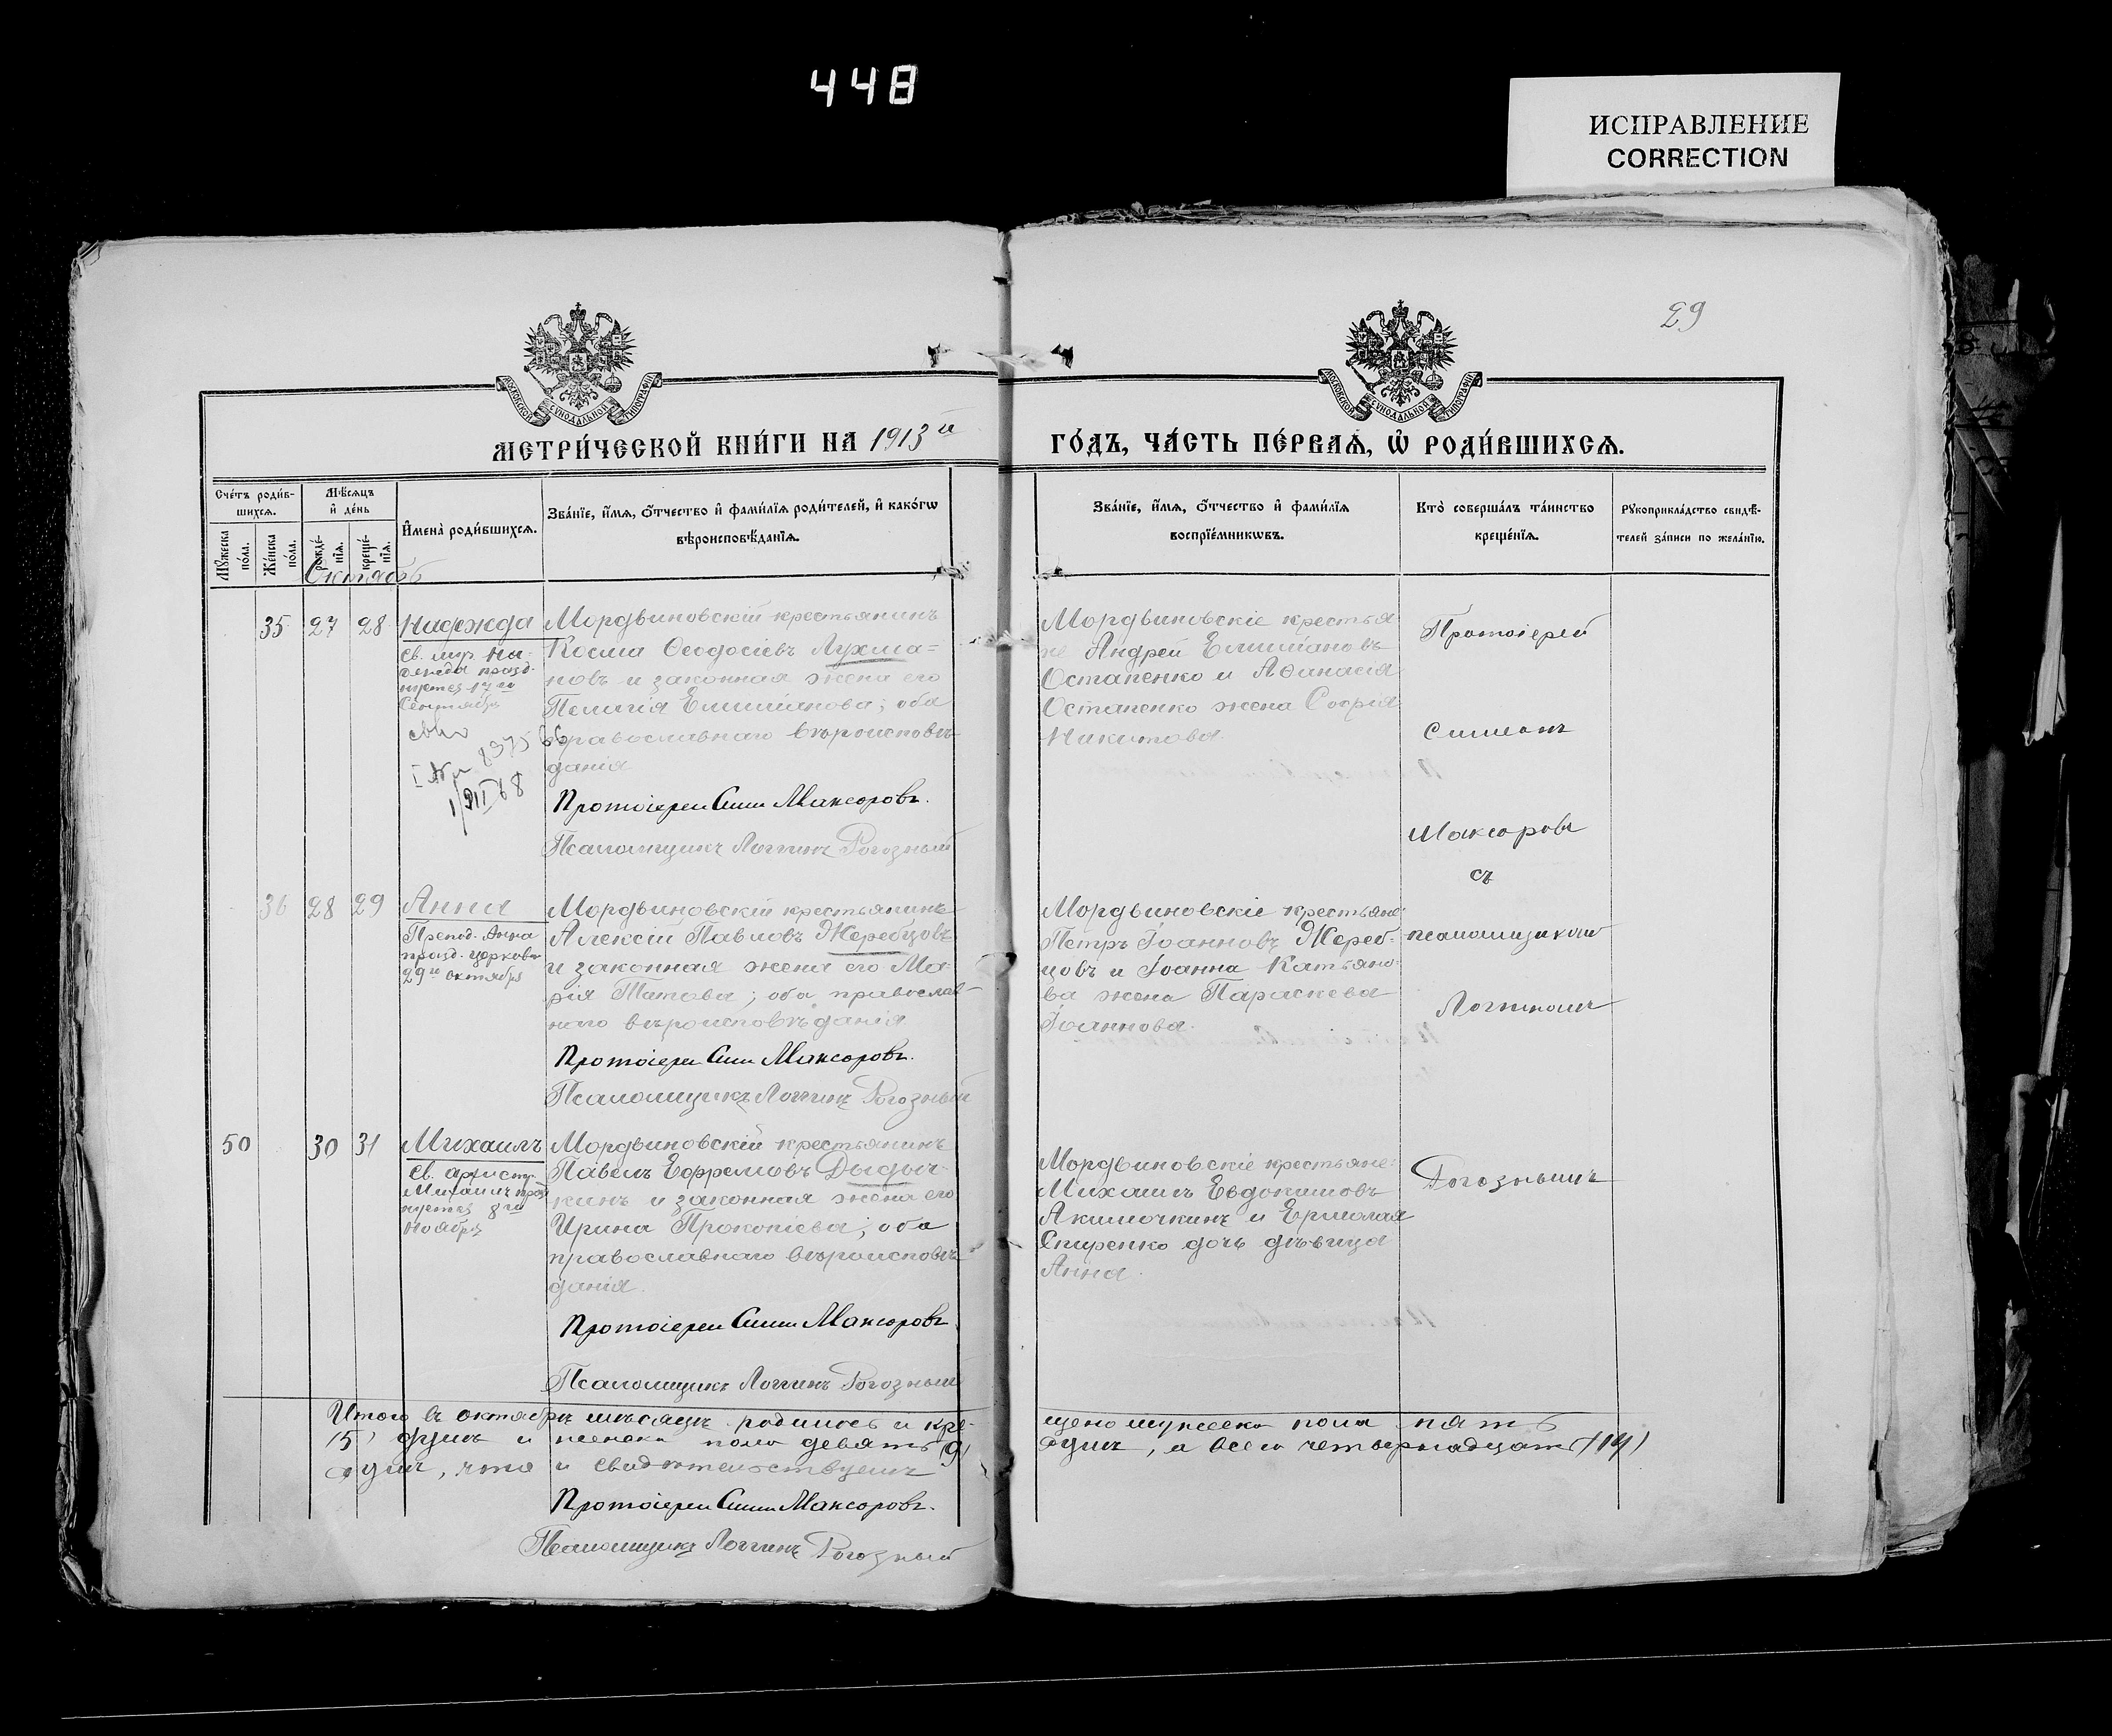 448
ИСПРАВЛЕНИЕ
CORRECTION
29
МОСКОВСКОЙ СѴНОДАЛЬНОЙ ТИПОГРАФІИ
МОСКОВСКОЙ СѴНОДАЛЬНОЙ ТИПОГРАФІИ
МЕТРИ́ЧЕСКОЙ КНИ́ГИ НА 1913й
ГО́ДЪ, ЧА́СТЬ ПЕ́РВАЯ, Ѡ҆ РОДИ́ВШИХСЯ.
Сче́тъ роди́в-
шихся.
Мѣ́сяцъ
и҆ де́нь
Мꙋ́жеска по́ла.
Же́нска по́ла.
рожде́-нїя.
креще́-нїя.
И҆мена̀ роди́вшихся.
Зва́нїе, и҆́мя, ѻ҆́тчество и҆ фами́лїя роди́телей, и҆ како́гѡ
вѣроисповѣ́данїя.
Зва́нїе, и҆́мя, ѻ҆́тчество и҆ фами́лїя
воспрїе́мникѡвъ.
Кто̀ соверша́лъ та́инство
креще́нїя.
Рꙋкоприкла́дство свидѣ́-
телей за́писи по жела́нїю.
Октябрь
35 27 28 Надежда
Св. муч. На-
дежда празд-
нуется 17го
Сентября
8375
1/VII 68
Мордвиновскій крестьянинъ
Косма Ѳеодосіевъ Лухма=
новъ и законная жена его
Пелагія Емиліанова; оба
православнаго вѣроисповѣ-
данія
Протоіерей Сим. Максоровъ.
Псаломщикъ Логгинъ Рогозный
Мордвиновскіе крестья
не Андрей Емиліановъ
Остапенко и Аѳанасія
Остапенко жена Софія
Никитова.
Протоіерей
Симеонъ
Максоровъ
съ
псаломщикомъ
Логгиномъ
Рогознымъ
36 28 29 Анна
Препод. Анна
празд. церковью
29го октября
Мордвиновскій крестьянинъ
Алексій Павловъ Жеребцовъ
и законная жена его Ма-
рія Титова; оба православ-
наго вѣроисповѣданія
Протоіерей Сим. Максоровъ.
Псаломщикъ Логгинъ Рогозный
Мордвиновскіе крестьяне
Петръ Іоанновъ Жереб-
цовъ и Іоанна Катьяно-
ва жена Параскева
Іоаннова.
50 30 31 Михаилъ
Св. архистр.
Михаилъ празд
нуется 8го
Ноября
Мордвиновскій крестьянинъ
Павелъ Ефремовъ Дыдыч-
кинъ и законная жена его
Ирина Прокопіева; оба
православнаго вѣроисповѣ-
данія.
Протоіерей Сим. Максоровъ
Псаломщикъ Логгинъ Рогозный
Мордвиновскіе крестьяне
Михаилъ Евдокимовъ
Акимочкинъ и Ермолая
Спиренко дочь дѣвица
Анна.
Итого въ октябрѣ мѣсяцѣ родилось и кре-
щено мужеска пола пять
(5) душъ и женска пола девять (9)
душъ, а всего четырнадцать (14)
душъ, что и свидѣтельствуемъ
Протоіерей Сим. Максоровъ.
Псаломщикъ Логгинъ Рогозный